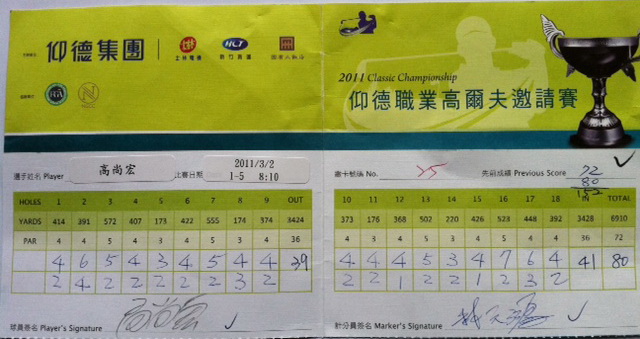 仰德集團
HCT
2011 Classic Championship
仰德職業高爾夫邀請賽
選手姓名 Player 高尚宏 比賽日期 2011/3/2
1-5 8:10
繳卡號碼 No. 25 先前成績 Previous Score 72
80
152
HOLES 1 2 3 4 5 6 7 8 9 OUT
YARDS 414 391 572 407 173 422 555 174 374 3424
PAR 4 4 5 4 3 4 5 3 4 36
4 6 5 4 3 4 5 4 4 39
2 4 2 2 2 2 2 3 2
球員簽名 Player's Signature 高尚宏
10 11 12 13 14 15 16 17 18 IN TOTAL
373 176 368 502 220 426 523 448 392 3428 6910
4 3 4 5 3 4 5 4 4 36 72
4 4 4 5 3 4 7 6 4 41 80
2 2 1 2 2 1 2 3 2
計分員簽名 Marker's Signature